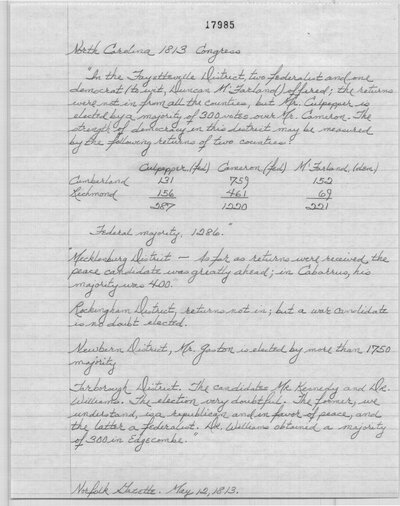 17985
North Carolina 1813 Congress
"In the Fayetteville District, two federalist and one
democrat (to wit, Duncan McFarland) offered; the returns
were not in from all the counties, but Mr. Culpepper is
elected by a majority of 300 votes over Mr. Cameron. The
strength of democracy in this district may be measured
by the following returns of two counties:
Culpepper (fed) Cameron (fed) McFarland, (dem)
Cumberland 131 759 152
Richmond 156 461 69
287 1220 221
Federal majority, 1286."
"Mecklenburg District — As far as returns were received, the
peace candidate was greatly ahead; in Cabarrus, his
majority was 400.
Rockingham District, returns not in; but a war candidate
is no doubt elected.
Newbern District, Mr. Gaston is elected by more than 1750
majority
Tarborough District. The candidates Mr. Kennedy and Dr.
Williams. The election very doubtful. The former, we
understand, is a republican and in favor of peace, and
the latter a federalist. Dr. Williams obtained a majority
of 300 in Edgecombe."
Norfolk Gazette. May 12, 1813.